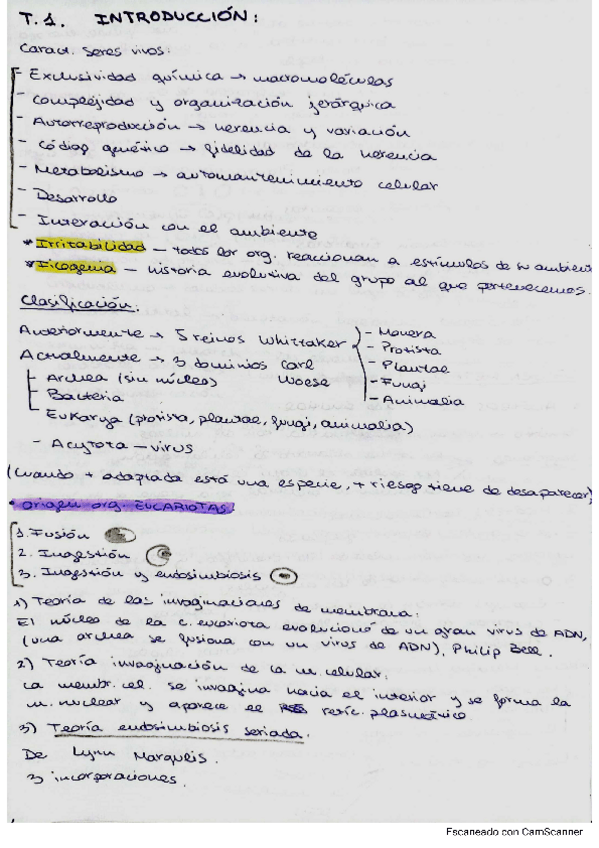 T.1. INTRODUCCIÓN:
Caract. seres vivos:
- Exclusividad química → macromoléculas
- Complejidad y organización jerárquica
- Autorreproducción → herencia y variación
- Código genético → fidelidad de la herencia
- Metabolismo → automantenimiento celular
- Desarrollo
- Interacción con el ambiente
* Irritabilidad — todos los org. reaccionan a estímulos de su ambient
* Ficogema — historia evolutiva del grupo al que pertenecemos.
Clasificación:
Anteriormente → 5 reinos Whittaker
- Monera
- Protista
- Plantae
- Fungi
- Animalia
Actualmente → 3 dominios Carl Woese
- Archea (sin núcleo)
- Bacteria
- Eukarya (protista, plantae, fungi, animalia)
- Acytota — virus
(Cuando + adaptada está una especie, + riesgo tiene de desaparecer)
* origen org. EUCARIOTAS:
1. Fusión
2. Ingestión
3. Ingestión y endosimbiosis
1) Teoría de las invaginaciones de membrana.
El núcleo de la c. eucariota evolucionó de un gran virus de ADN,
(una archea se fusiona con un virus de ADN), Philip Bell.
2) Teoría invaginación de la m. celular.
La membr. cel. se invagina hacia el interior y se forma la
m. nuclear y aparece el retíc. plasmático
3) Teoría endosimbiosis seriada.
De Lynn Margulis.
3 incorporaciones.
Escaneado con CamScanner